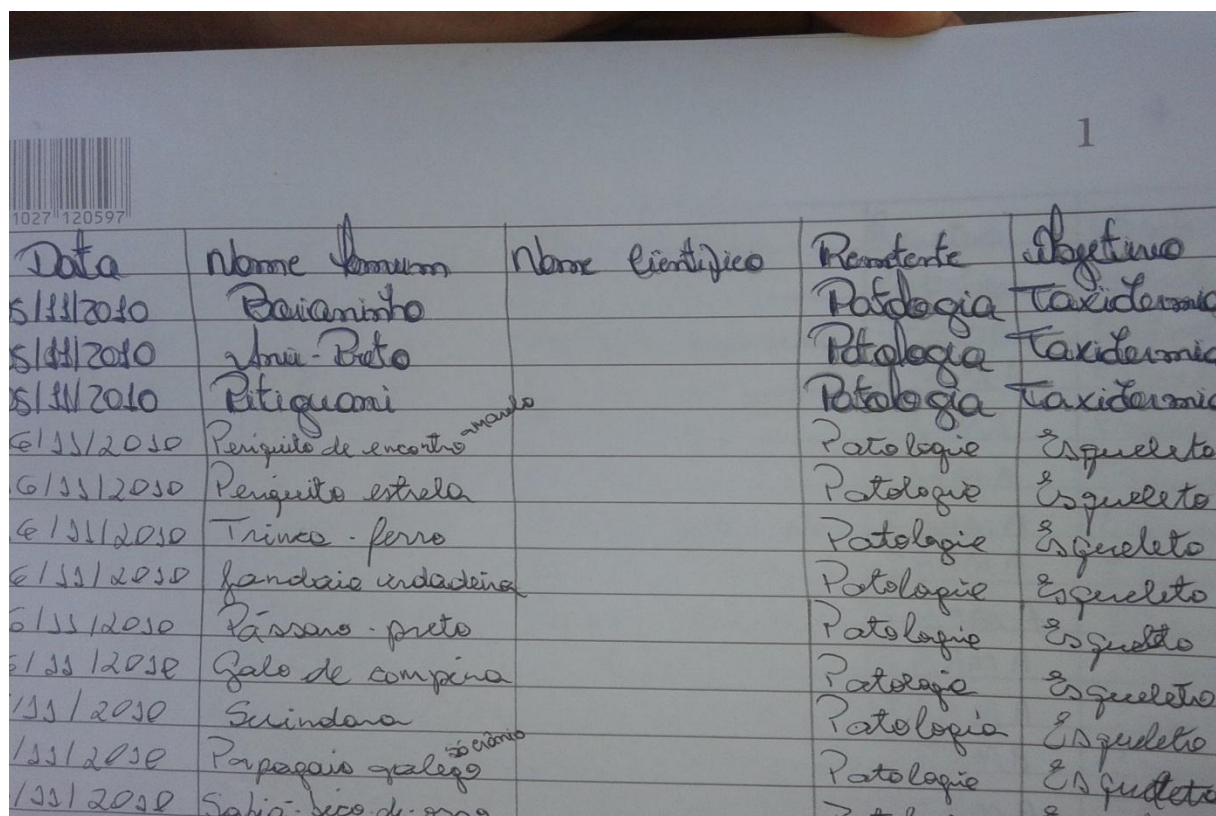 1
1027 120597
Data Nome Comum Nome Científico Remetente Objetivo
5/11/2010 Baianinho Patologia Taxidermia
5/11/2010 Anu-Preto Patologia Taxidermia
05/11/2010 Pitiguari Patologia Taxidermia
6/11/2010 Periquito de encontro amarelo Patologia Esqueleto
6/11/2010 Periquito estrela Patologia Esqueleto
6/11/2010 Trinca-ferro Patologia Esqueleto
6/11/2010 Jandaia verdadeira Patologia Esqueleto
6/11/2010 Pássaro-preto Patologia Esqueleto
/11/2010 Galo de campina Patologia Esqueleto
/11/2010 Suindara Patologia Esqueleto
/11/2010 Papagaio galego só crânio Patologia Esqueleto
/11/2010 Sabiá-bico-de-osso